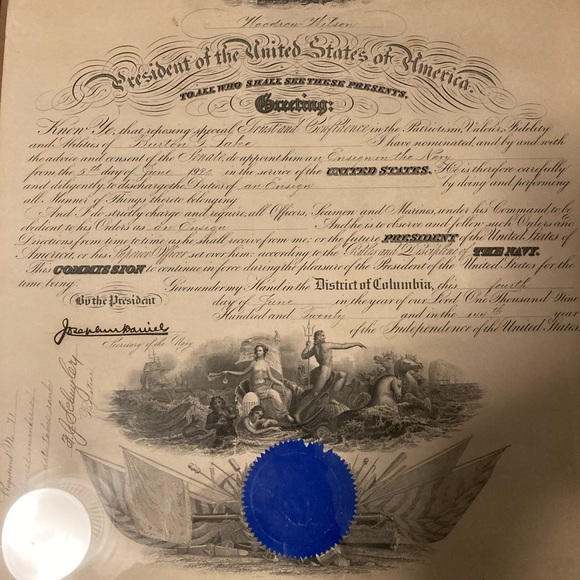 Woodrow Wilson
President of the United States of America.
TO ALL WHO SHALL SEE THESE PRESENTS,
Greeting:
Know Ye, that reposing special Trust and Confidence in the Patriotism, Valour, Fidelity
and Abilities of Burton I have nominated, and by and with
the advice and consent of the Senate, do appoint him an Ensign in the Navy
from the 5th day of June 1920 in the service of the UNITED STATES. He is therefore carefully
and diligently to discharge the Duties of an Ensign by doing and performing
all Manner of Things thereto belonging.
And I do strictly charge and require all Officers, Seamen and Marines, under his Command to be
obedient to his Orders as an Ensign And he is to observe and follow such Orders and
Directions from time to time as he shall receive from me, or the future PRESIDENT of the United States of
America, or his Superior Officer set over him, according to the Rules and Discipline of THE NAVY.
This COMMISSION to continue in force during the pleasure of the President of the United States for the
time being.
Given under my Hand in the District of Columbia, this fourth
By the President
day of June in the year of our Lord, One Thousand Nine
Hundred and Twenty and in the 144th year
of the Independence of the United States.
Josephus Daniels
Secretary of the Navy
Registered No.